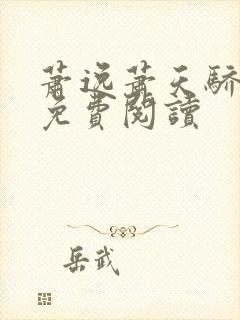 蕭逸蕭天驕
免費閱讀
岳武